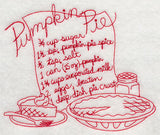 Pumpkin Pie
¾ cup sugar
1 T. pumpkin pie spice
½ t. salt
1 can (15 oz) pumpkin
1¼ cup evaporated milk
2 eggs, beaten
1 deep dish pie crust